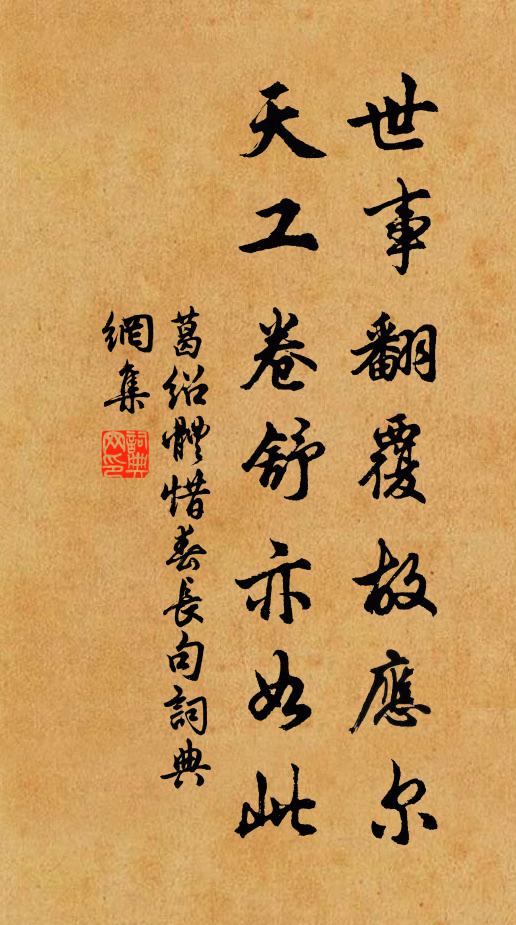 世事翻覆故應尔
天工卷舒亦如此
葛绍體惜春長句詞典
網集
詞典網印